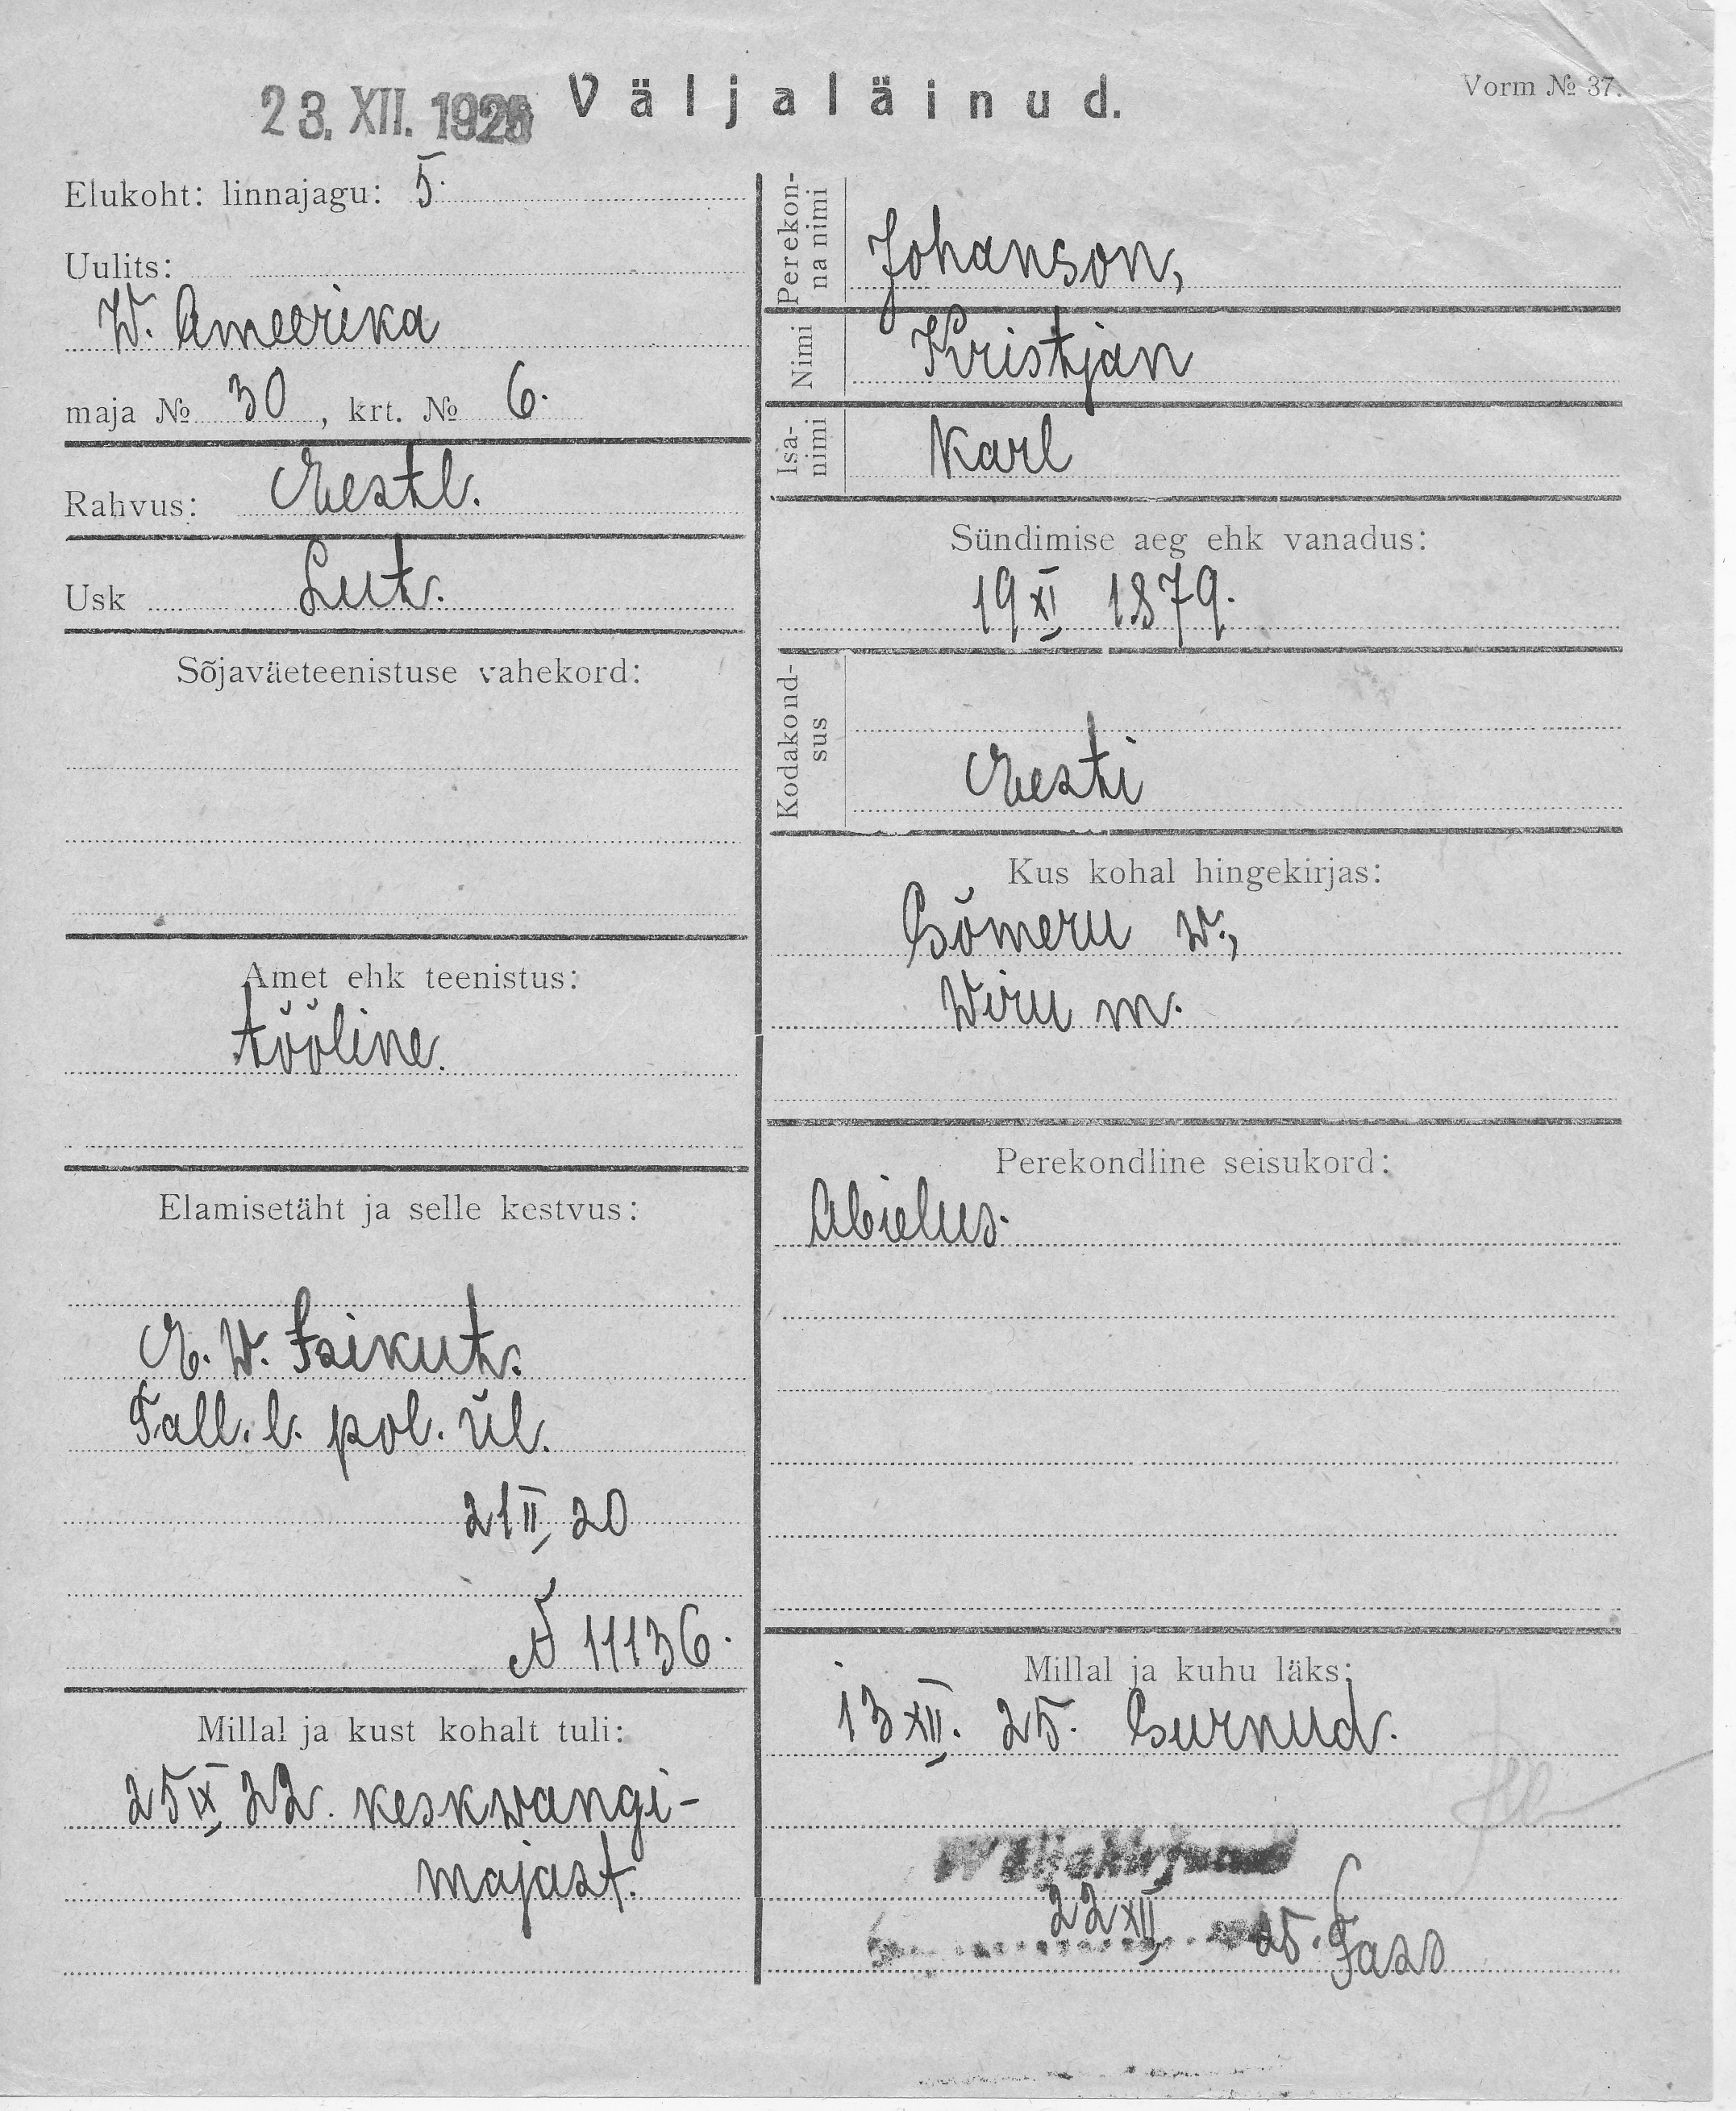 23. XII. 1925 Väljaläinud.
Vorm № 37.
Elukoht: linnajagu: 5.
Uulits:
W. Ameerika
maja № 30, krt. № 6.
Rahvus: Eestl.
Usk Lut.
Sõjaväeteenistuse vahekord:
Amet ehk teenistus:
tööline.
Elamisetäht ja selle kestvus:
E. W. Isikut.
Tall. l. pol. ül.
21 II 20
№ 11136.
Millal ja kust kohalt tuli:
25 IX 22. keskwangi-
majast.
Perekon-
na nimi
Johanson,
Nimi
Kristjan
Isa-
nimi
Karl
Sündimise aeg ehk vanadus:
19 XI 1879.
Kodakond-
sus
Eesti
Kus kohal hingekirjas:
Sõmeru w.,
Wiru m.
Perekondline seisukord:
Abielus.
Millal ja kuhu läks:
13 XII. 25. Surnud.
Wäljakirjutatud
22 XII 25. Tass